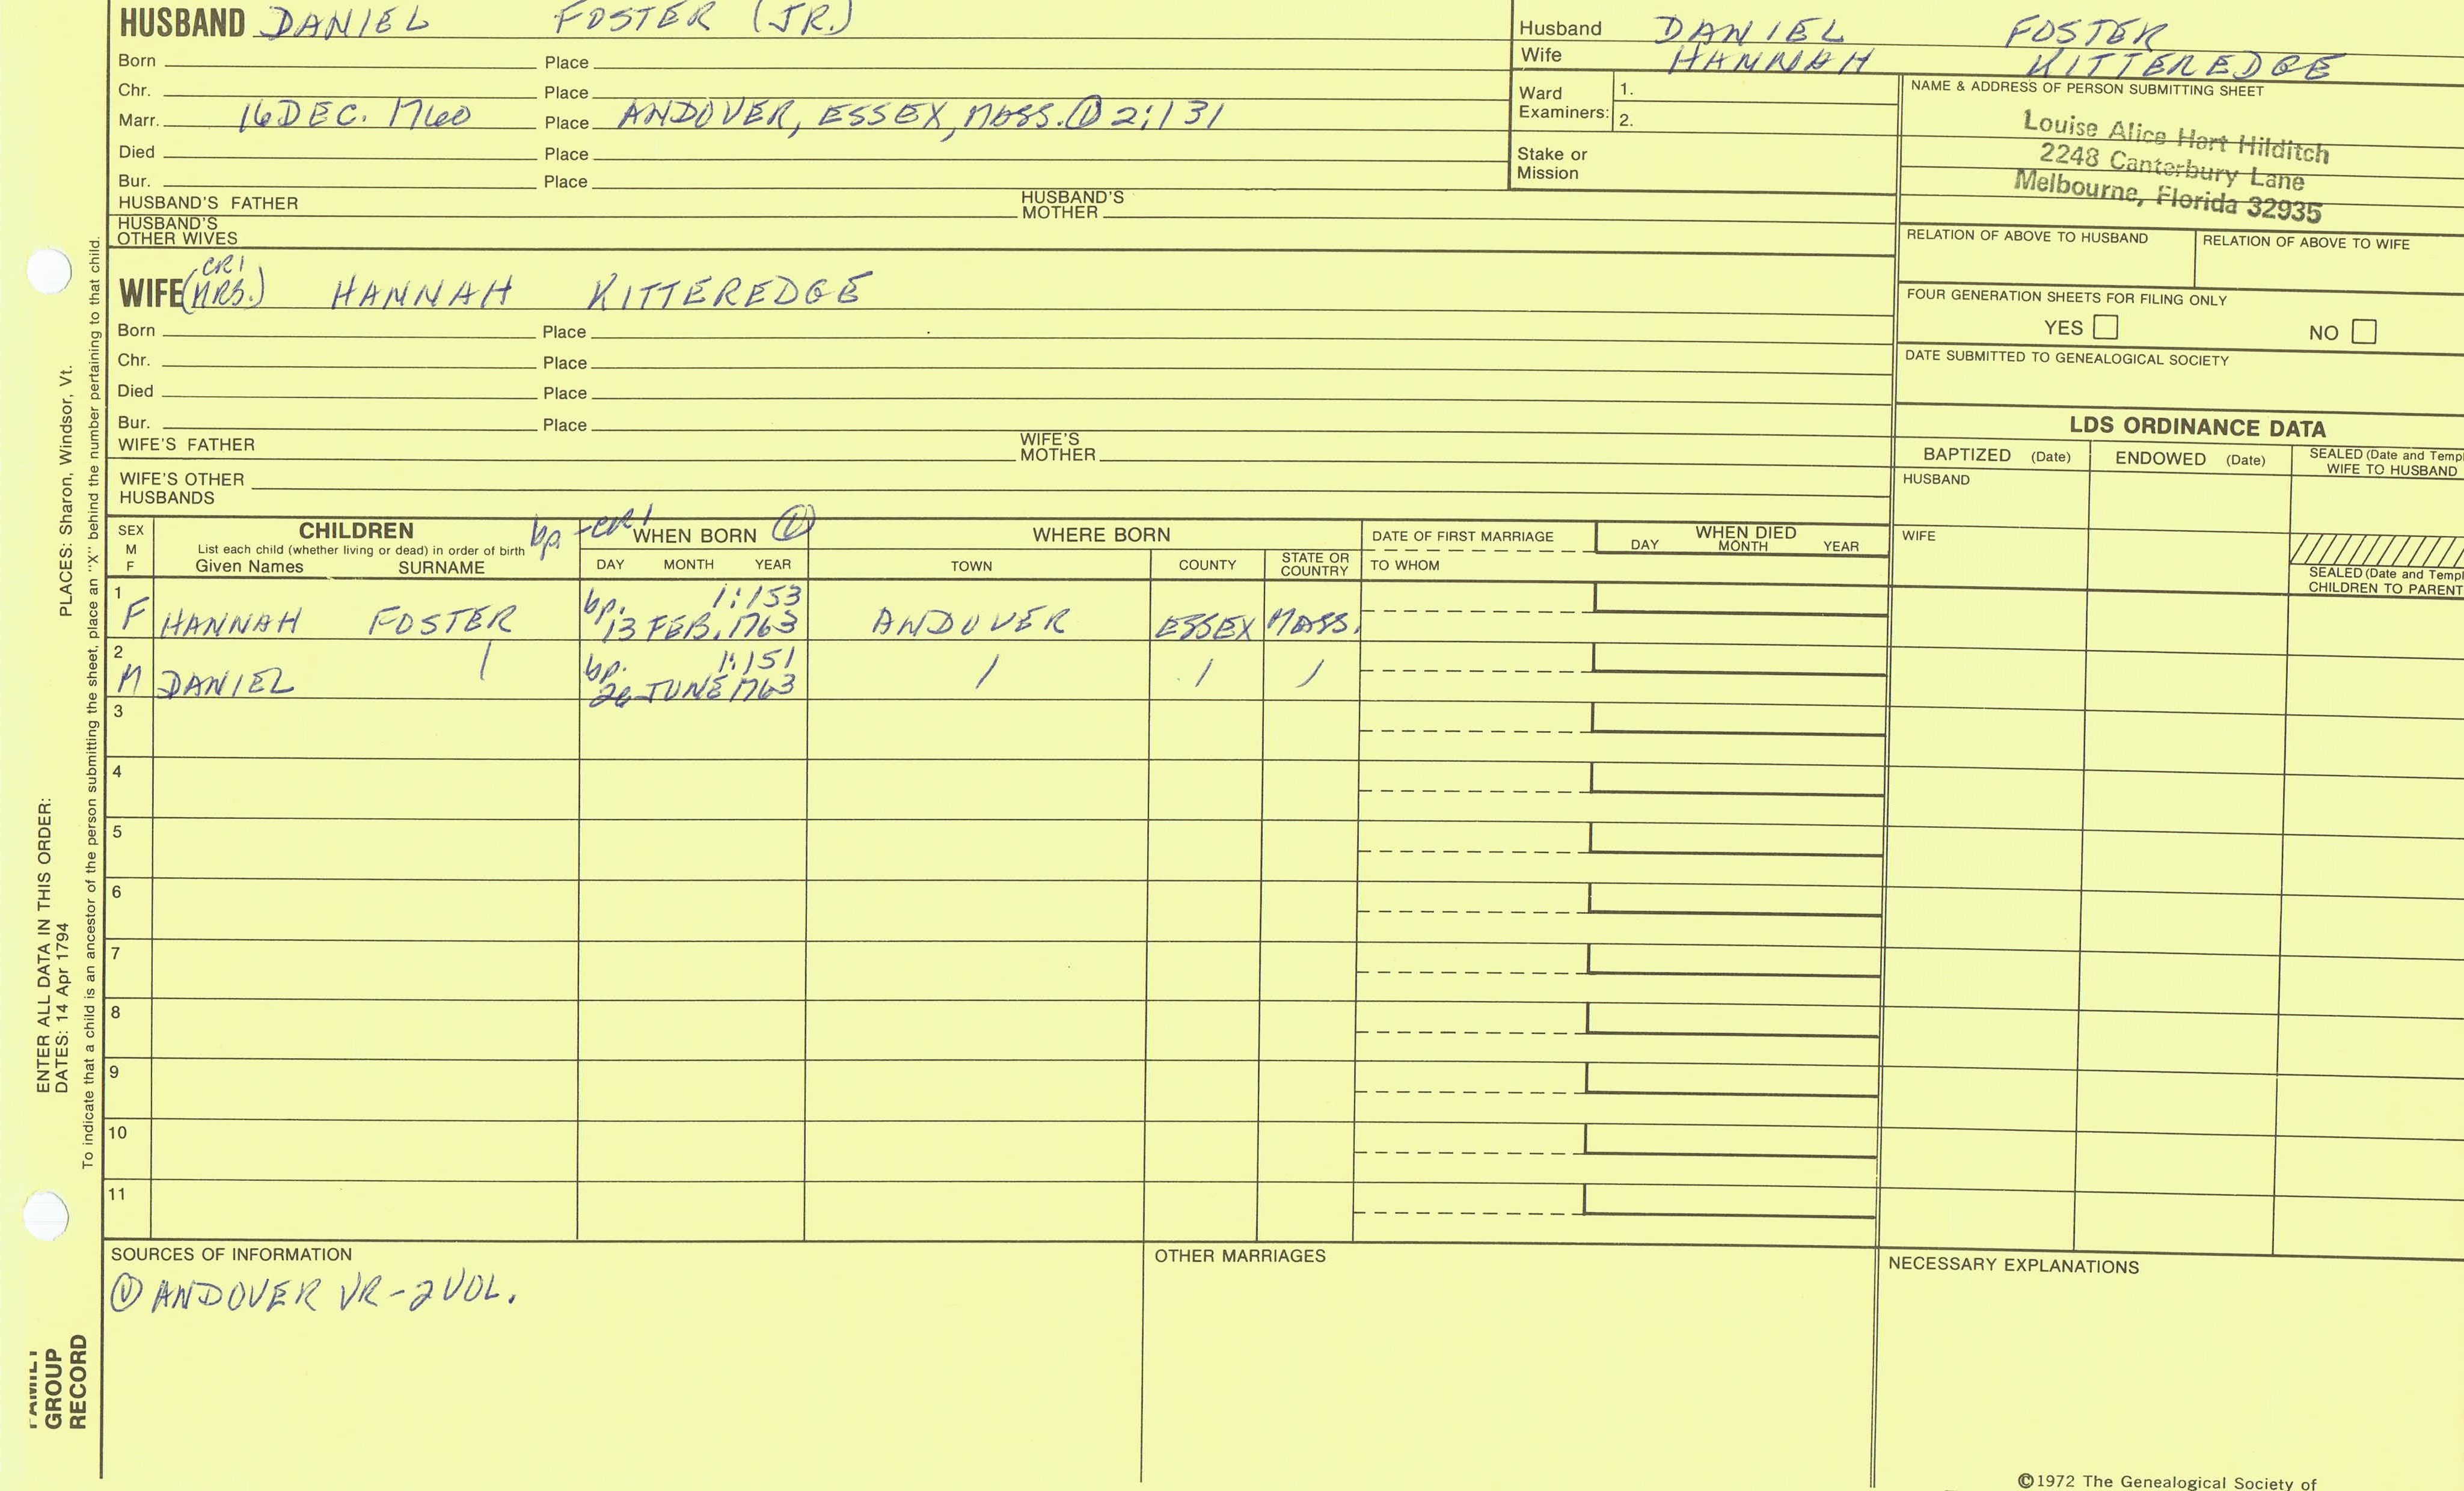 HUSBAND DANIEL FOSTER (JR.)
Born Place
Chr. Place
Marr. 16 DEC. 1760 Place ANDOVER, ESSEX, MASS. ① 2:131
Died Place
Bur. Place
HUSBAND'S FATHER HUSBAND'S MOTHER
HUSBAND'S OTHER WIVES
CR1
WIFE (MRS.) HANNAH KITTEREDGE
Born Place
Chr. Place
Died Place
Bur. Place
WIFE'S FATHER WIFE'S MOTHER
WIFE'S OTHER HUSBANDS
Husband DANIEL FOSTER
Wife HANNAH KITTEREDGE
Ward Examiners: 1.
2.
Stake or Mission
NAME & ADDRESS OF PERSON SUBMITTING SHEET
Louise Alice Hart Hilditch
2248 Canterbury Lane
Melbourne, Florida 32935
RELATION OF ABOVE TO HUSBAND RELATION OF ABOVE TO WIFE
FOUR GENERATION SHEETS FOR FILING ONLY
YES NO
DATE SUBMITTED TO GENEALOGICAL SOCIETY
LDS ORDINANCE DATA
BAPTIZED (Date) ENDOWED (Date) SEALED (Date and Templ
WIFE TO HUSBAND
HUSBAND
WIFE
SEALED (Date and Templ
CHILDREN TO PARENT
SEX
M
F
CHILDREN
List each child (whether living or dead) in order of birth
Given Names SURNAME
bp CR1 WHEN BORN ①
DAY MONTH YEAR
WHERE BORN
TOWN COUNTY STATE OR COUNTRY
DATE OF FIRST MARRIAGE
TO WHOM
WHEN DIED
DAY MONTH YEAR
1 bp. 1:153
F HANNAH FOSTER 13 FEB. 1763 ANDOVER ESSEX MASS.
2 bp. 1:151
M DANIEL / 26 JUNE 1763 / / /
3
4
5
6
7
8
9
10
11
SOURCES OF INFORMATION
① ANDOVER VR - 2 VOL.
OTHER MARRIAGES
NECESSARY EXPLANATIONS
©1972 The Genealogical Society of
ENTER ALL DATA IN THIS ORDER:
DATES: 14 Apr 1794
PLACES: Sharon, Windsor, Vt.
To indicate that a child is an ancestor of the person submitting the sheet, place an "X" behind the number pertaining to that child.
FAMILY
GROUP
RECORD